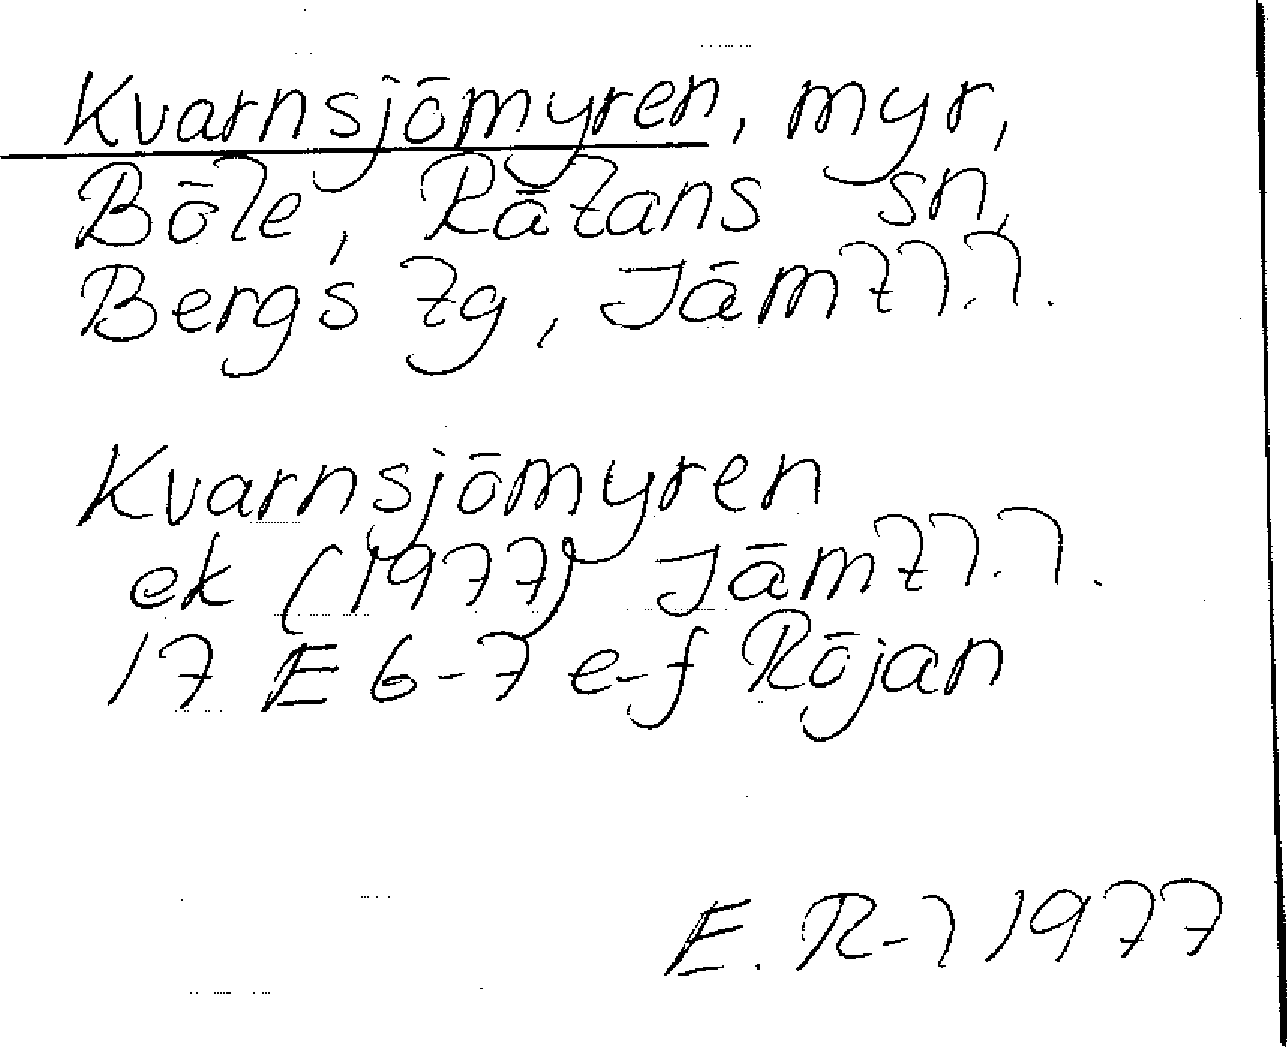 Kvarnsjömyren, myr,
Böle, Rätans sn,
Bergs tg, Jämtl.l.
Kvarnsjömyren
ek (1977) Jämtl.l.
17 E 6-7 e-f Röjan
E. R-l 1977